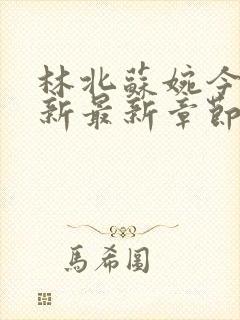 林北蘇婉今
新最新章節
馬希圖